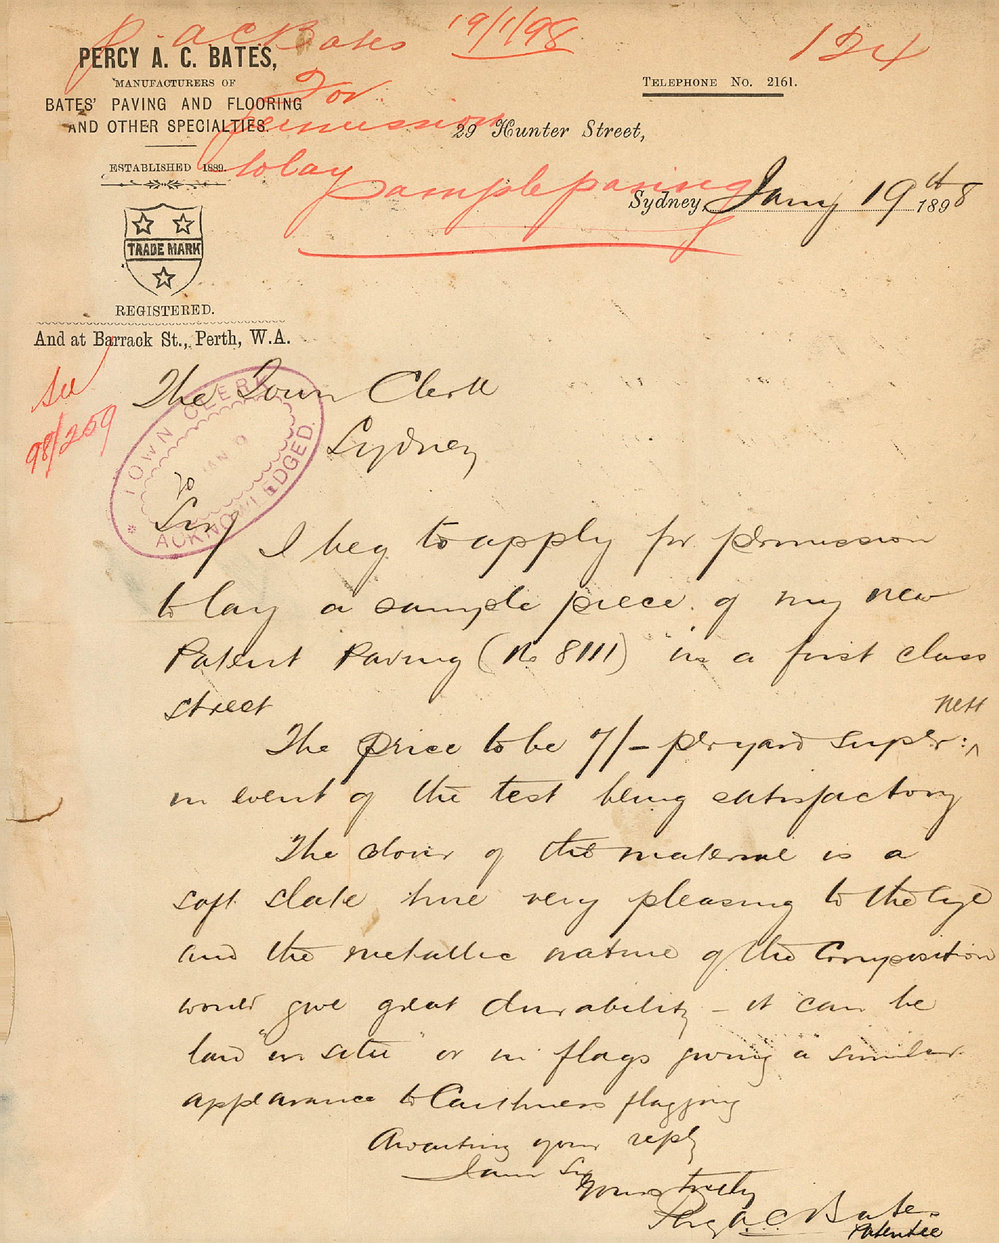 P. A C Bates 19/1/98
124
For
permission
to lay
sample paving
PERCY A. C. BATES,
MANUFACTURERS OF
BATES' PAVING AND FLOORING
AND OTHER SPECIALTIES.
ESTABLISHED 1889.
TRADE MARK
REGISTERED.
And at Barrack St., Perth, W.A.
TELEPHONE NO. 2161.
29 Hunter Street,
Sydney, Jany 19th 1898
See
98/259
TOWN CLERK
JAN 19
ACKNOWLEDGED.
The Town Clerk
Sydney
Sir
I beg to apply for permission
to lay a sample piece of my new
Patent Paving (No 8111) in a first class
street
The price to be 7/- per yard super: nett
in event of the test being satisfactory
The colour of the material is a
soft slate hue very pleasing to the eye
and the metallic nature of the composition
would give great durability - it can be
laid "in situ" or in flags giving a similar
appearance to Caithness flagging
Awaiting your reply
I am Sir
Yours truly
Percy A. C. Bates
Patentee